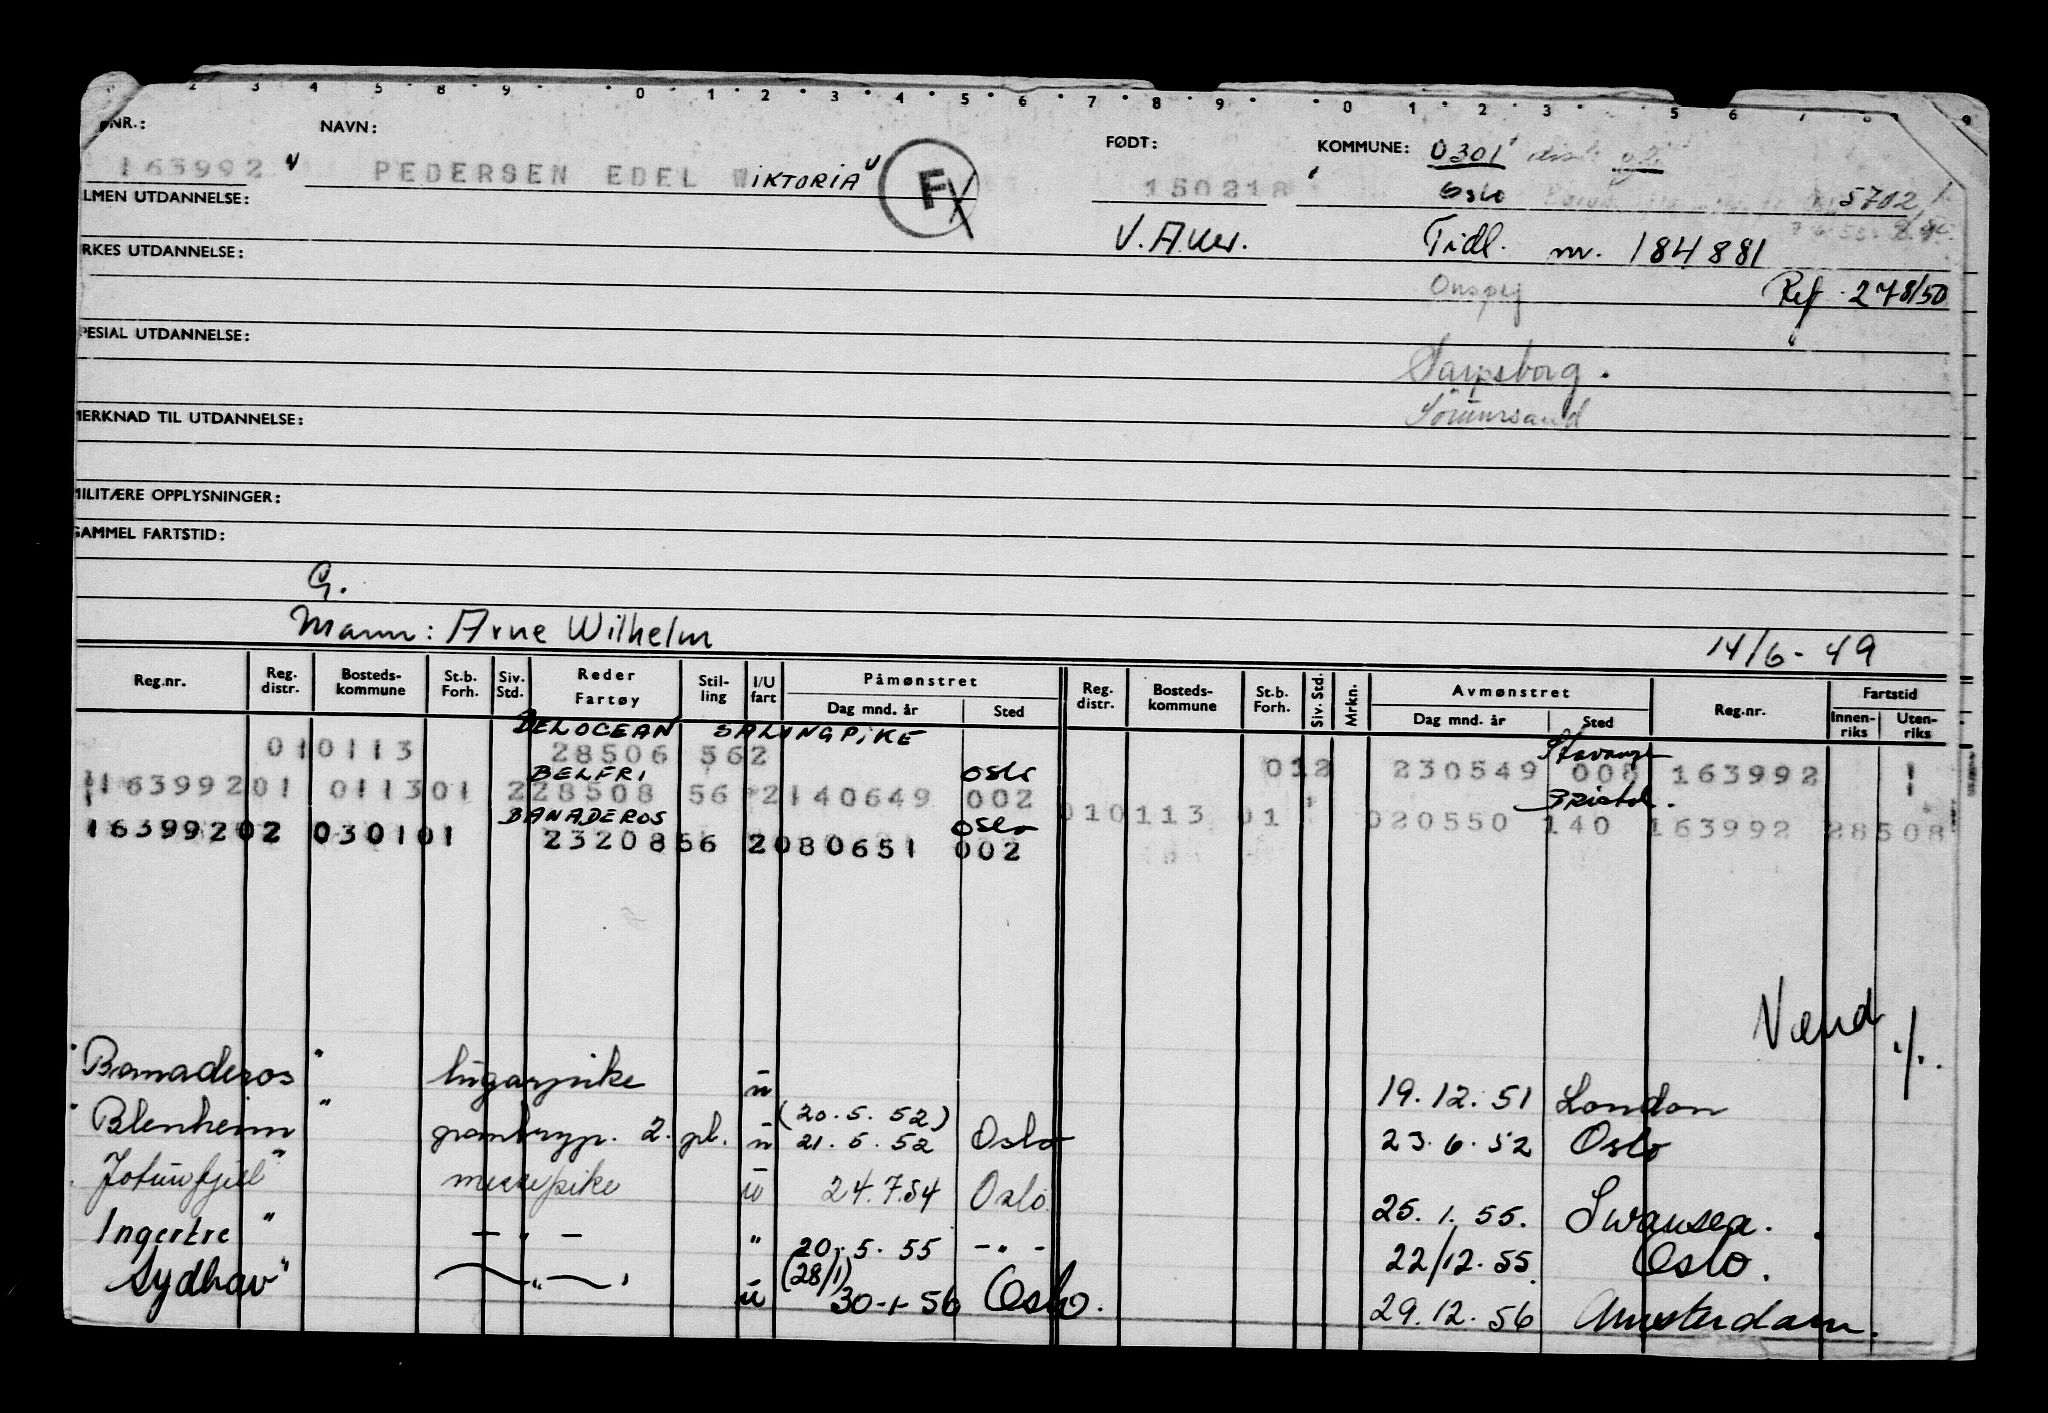 2 3 4 5 8 9 0 1 2 3 4 5 6 7 8 9 0 1 2 3 5 6 7 8 9
NR.: NAVN: FØDT: KOMMUNE: 0301
163992 " PEDERSEN EDEL WIKTORIA" F 150218 Oslo 5702
LMEN UTDANNELSE: V. Aker. Tidl. nr. 184881
RKES UTDANNELSE: Onsøy Ref. 278/50
PESIAL UTDANNELSE: Sarpsborg.
MERKNAD TIL UTDANNELSE:
MILITÆRE OPPLYSNINGER:
GAMMEL FARTSTID:
G.
Mann: Arne Wilhelm 14/6-49
Reg.nr. Reg. distr. Bosteds-kommune St.b. Forh. Siv. Std. Reder Fartøy Stil-ling I/U fart Påmønstret Dag mnd. år Sted Reg. distr. Bosteds-kommune St.b. Forh. Siv. Std. Mrkn. Avmønstret Dag mnd. år Sted Reg.nr. Fartstid Innen-riks Uten-riks
BELOCEAN SALINGPIKE Stavanger
010113 28506 562 012 230549 008 163992
BELFRI OSLO Bristol.
163992 01 011301 228508 56 2 140649 002 010113 01 020550 140 163992 28508
BANADEROS OSLO
163992 02 030101 23208 56 2 080651 002
Vend ./.
Banaderos " lugarpike u 19.12.51 London
(20.5.52)
Blenheim " 2. pl. u 21.5.52 Oslo 23.6.52 Oslo
Jotunfjell " messepike u 24.7.54 Oslo 25.1.55. Swansea.
Ingertre " - " - " 20.5.55 - " - 22/12.55 Oslo.
(28/1)
Sydhav " - " - u 30-1-56 Oslo. 29.12.56 Amsterdam.